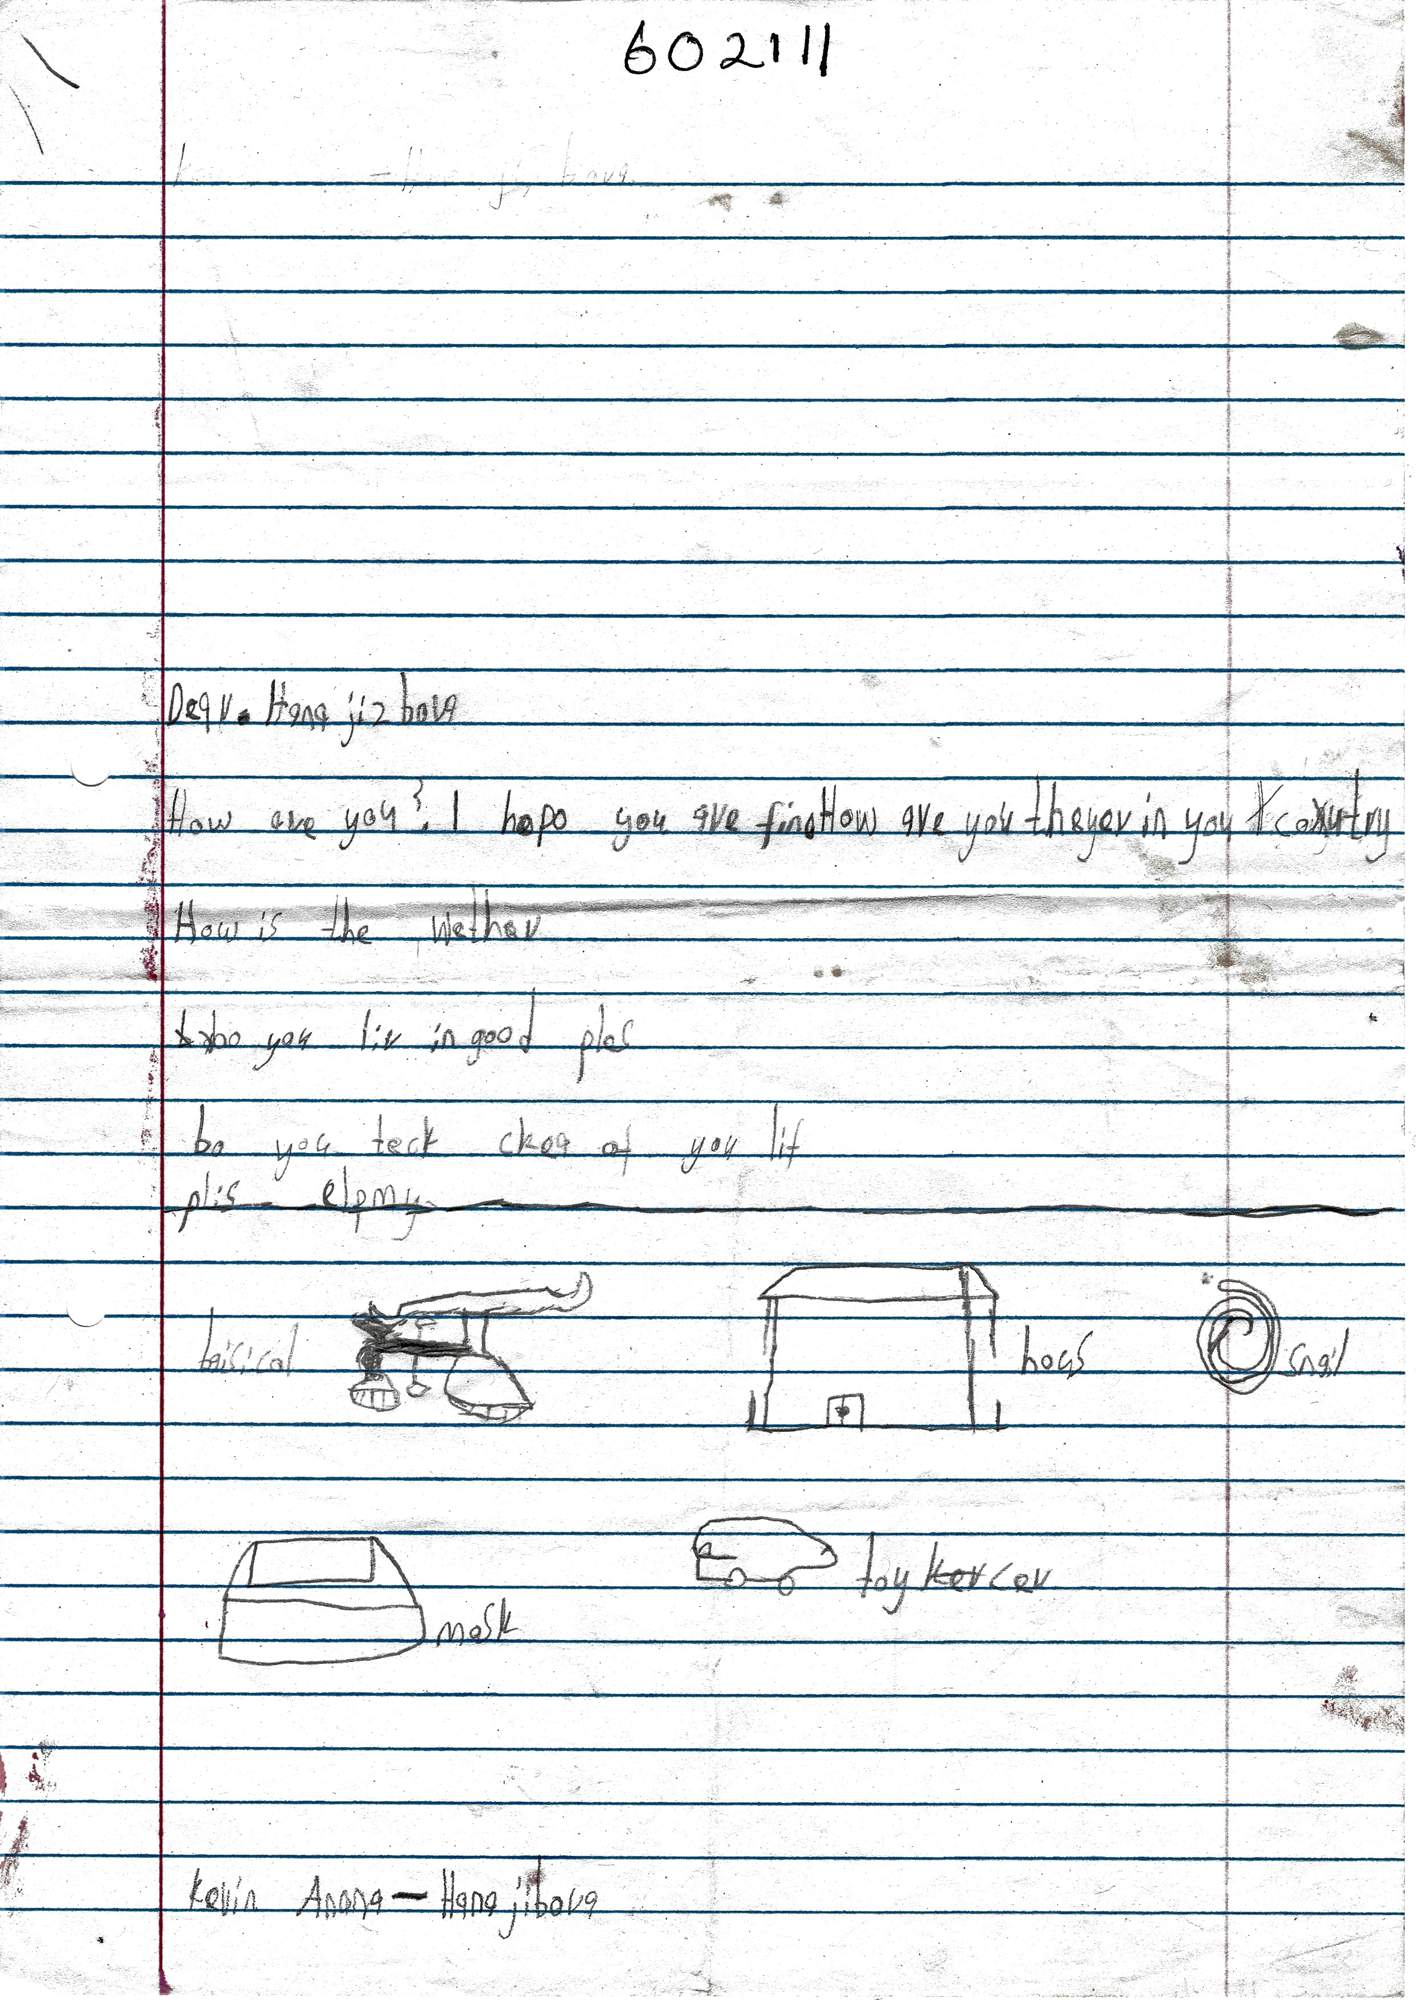 602111
Dear. Hana jiz bova
How are you? I hopo you are fine How are you theyer in you country
How is the wether
bo you liv in good ples
bo you teck ckea of you lif
plis elpmy
baisical
hoas
snail
toy ker cer
mask
Kevin Anona - Hana jibova